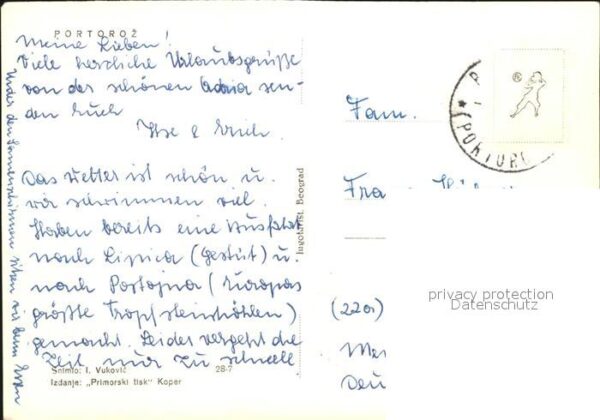 PORTOROŽ
Meine Lieben!
Viele herzliche Urlaubsgrüße
von der schönen Adria sen-
den Euch
Ilse & Erich.
Das Wetter ist schön u.
wir schwimmen viel.
Haben bereits eine Ausfahrt
nach Lipica (Gestüt) u.
nach Postojna (Europas
größte Tropfsteinhöhlen)
gemacht. Leider vergeht die
Zeit nur zu schnell.
Unter den Sonnenschirmen sitzen wir beim
Snimio: I. Vuković
28-7
Izdanje: „Primorski tisk" Koper
Jugoturist, Beograd
Fam.
(2201)
privacy protection
Datenschutz